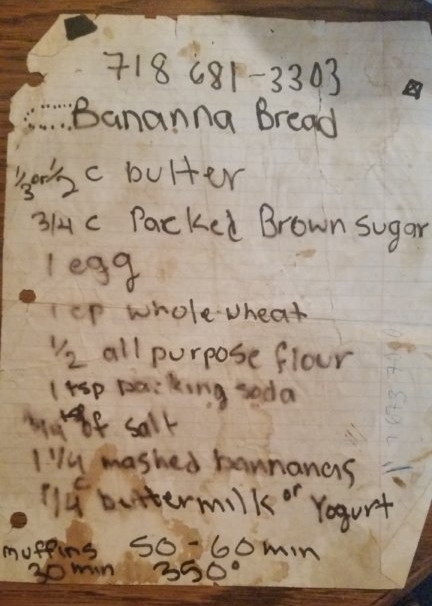 718 681-3303
Bananna Bread
1/3 or 1/2 c butter
3/4 c Packed Brown sugar
1 egg
1 cp whole-wheat
1/2 all purpose flour
1 tsp backing soda
of salt
1 1/4 mashed bannanas
1/4 c buttermilk or Yogurt
muffins 50-60 min
30 min 350°